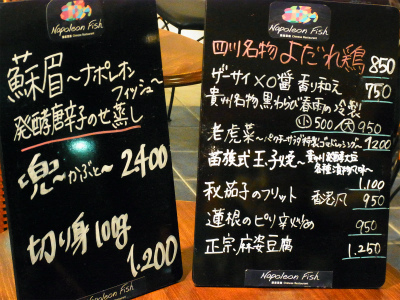 Napoleon Fish
Chinese Restaurant
蘇眉～ナポレオン
フィッシュ～
発酵唐辛子のせ蒸し
兜～かぶと～ 2400
切り身100g
1.200
Napoleon Fish
Napoleon Fish
Chinese Restaurant
四川名物よだれ鶏 850
ザーサイXO醤香り和え 750
貴州名物 黒わらび春雨の冷製
小500 大950
老虎菜～パクチーサラダ特製ごまドレッシング～ 1200
苗族式 玉子焼～貴州発酵大豆
各種漬物風味～
1.100
秋茄子のフリット 香老风 950
蓮根のピリ辛炒め 950
正宗.麻婆豆腐 1.250
Napoleon Fish
Chinese Restaurant